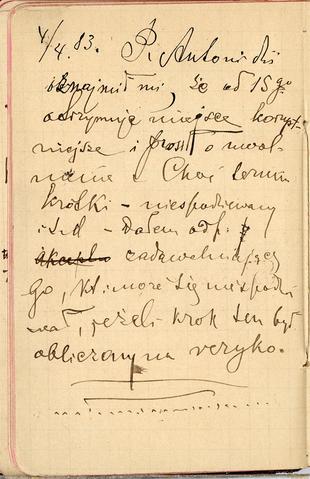 4/4. 83. P. Antoni dziś
oznajmił mi, że od 15 go
otrzymuje miejsce korzyst-
niejsze i prosił o uwol-
nienie. Choć termin
krótki – niespodziewany
i t.d. – Dałem odp.
zadawalniającą
go, kt. może się nie spodzie
wał, jeżeli krok ten był
obliczony na ryzyko.